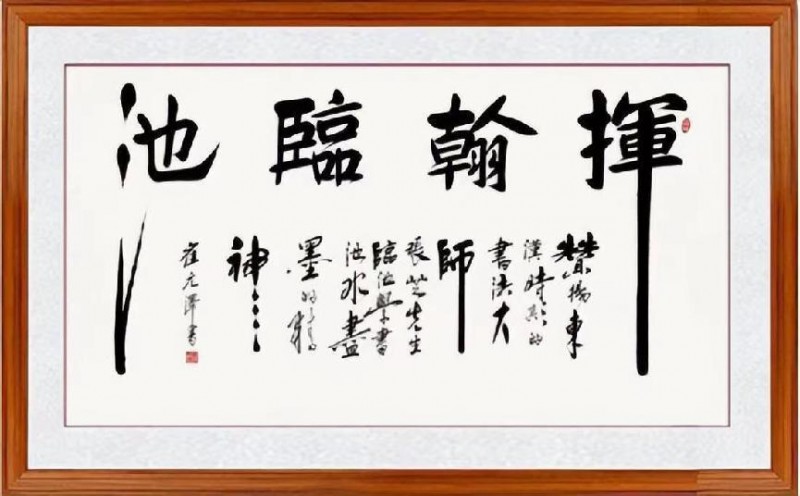 揮翰臨池
贊揚東
漢時期的
書法大
師
張芝先生
臨池學書
池水盡
墨的精
神
崔元澤書